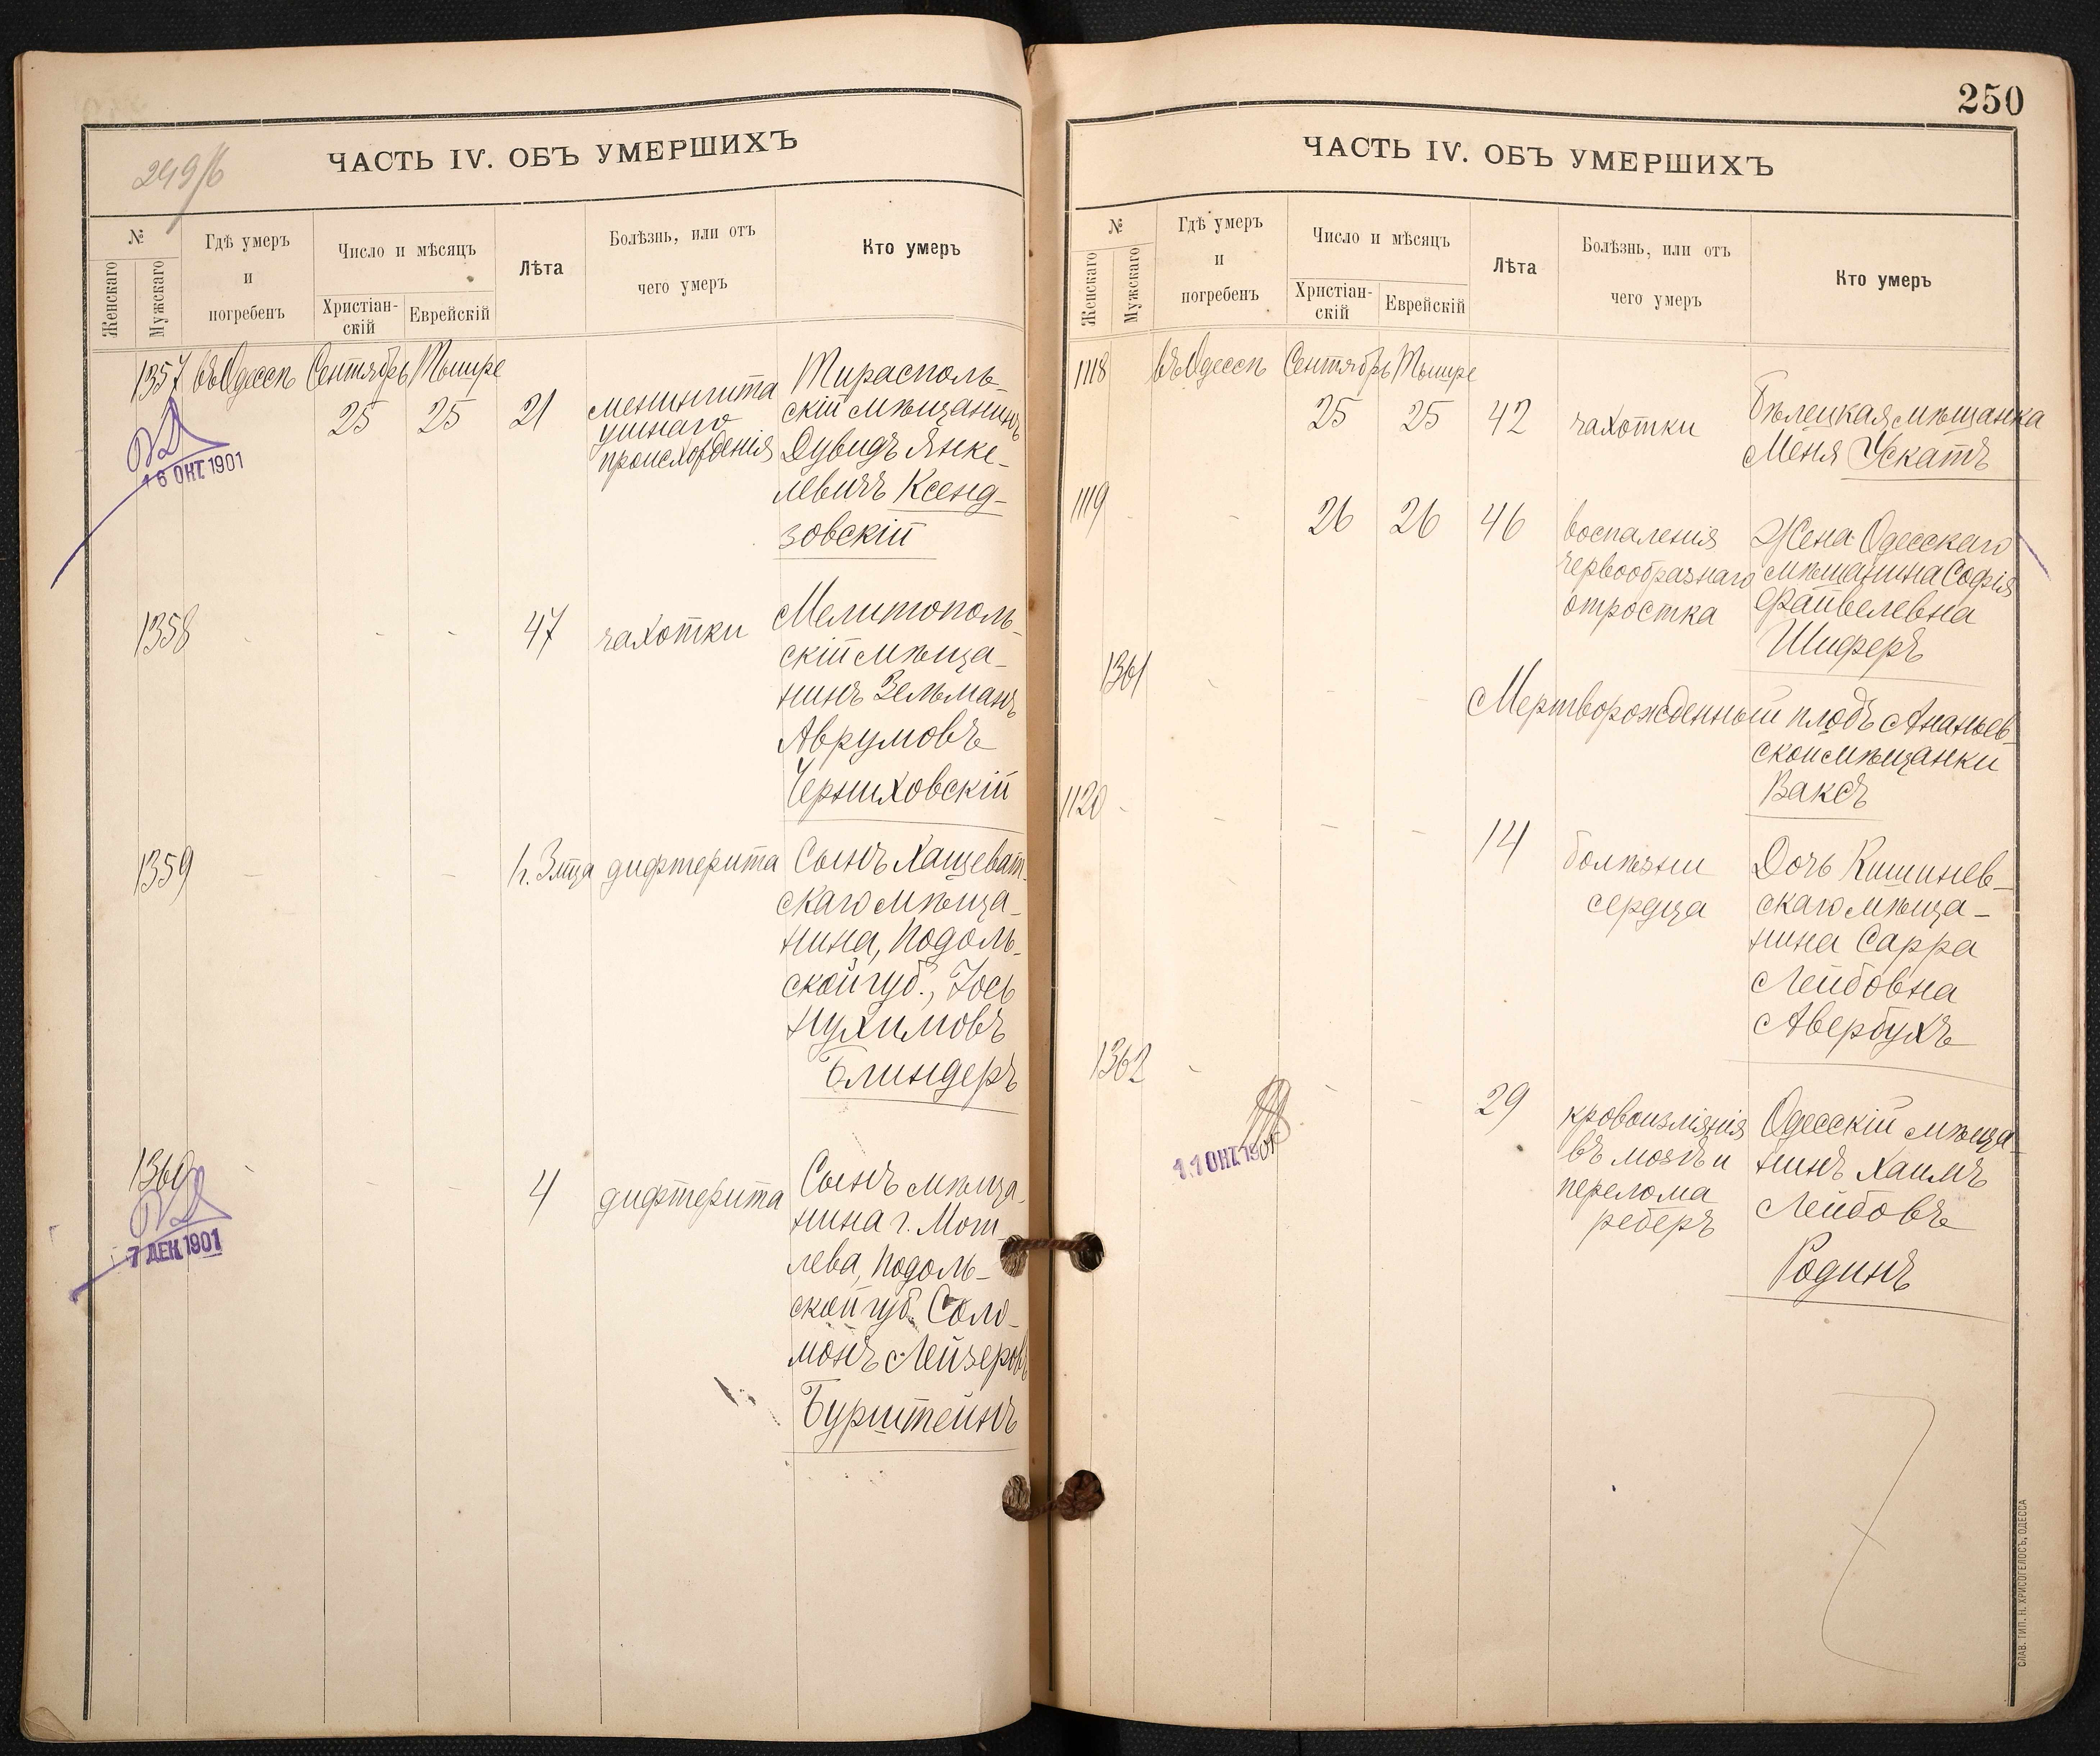 249/б
ЧАСТЬ IV. ОБЪ УМЕРШИХЪ
№
Женскаго
Мужскаго
Гдѣ умеръ
и
погребенъ
Число и мѣсяцъ
Христіан-
скій
Еврейскій
Лѣта
Болѣзнь, или отъ
чего умеръ
Кто умеръ
1357 въ Одессѣ Сентябрь Тишре
25 25 21
менингита
ушнаго
происхожденія
Тирасполь-
скій мѣщанинъ
Дувидъ Янке-
левичъ Ксенд-
зовскій
16 ОКТ. 1901
1358 - - - 47 чахотки
Мелитополь-
скій мѣща-
нинъ Зельманъ
Аврумовъ
Черниховскій
1359 - - - 1 г. 3 мца дифтерита
Сынъ Хащеват-
скаго мѣща-
нина, Подоль-
ской губ., Іось
Нухимовъ
Блиндеръ
1360 - - - 4 дифтерита
7 ДЕК. 1901
Сынъ мѣща-
нина г. Мог-
лева, Подоль-
ской губ. Соло-
монъ Лейзеровъ
Бурштейнъ
250
ЧАСТЬ IV. ОБЪ УМЕРШИХЪ
№
Женскаго
Мужскаго
Гдѣ умеръ
и
погребенъ
Число и мѣсяцъ
Христіан-
скій
Еврейскій
Лѣта
Болѣзнь, или отъ
чего умеръ
Кто умеръ
1118 въ Одессѣ Сентябрь Тишре
25 25 42 чахотки
Бѣлецкая мѣщанка
Меня Ускатъ
1119 - - 26 26 46
воспаленія
червообразнаго
отростка
Жена Одесскаго
мѣщанина Софія
Файвелевна
Шиферъ
1361 - - -
Мертворожденный плодъ Ананьев-
ской мѣщанки
Ваксъ
1120 - - - - 14
болѣзни
сердца
Дочь Кишинев-
скаго мѣща-
нина Сарра
Лейбовна
Авербухъ
1362 - - - 29
11 ОКТ. 1901
кровоизліянія
въ мозгъ и
перелома
реберъ
Одесскій мѣща-
нинъ Хаимъ
Лейбовъ
Родинъ
СЛАВ. ТИП. Н. ХРИСОГЕЛОСЪ, ОДЕССА